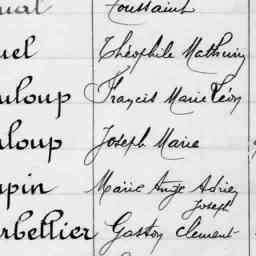 Toussaint
uel Théophile Mathurin
uloup Francis Marie Léon
uloup Joseph Marie
upin Marie Ange Adrien
Joseph
rbellier Gaston Clement